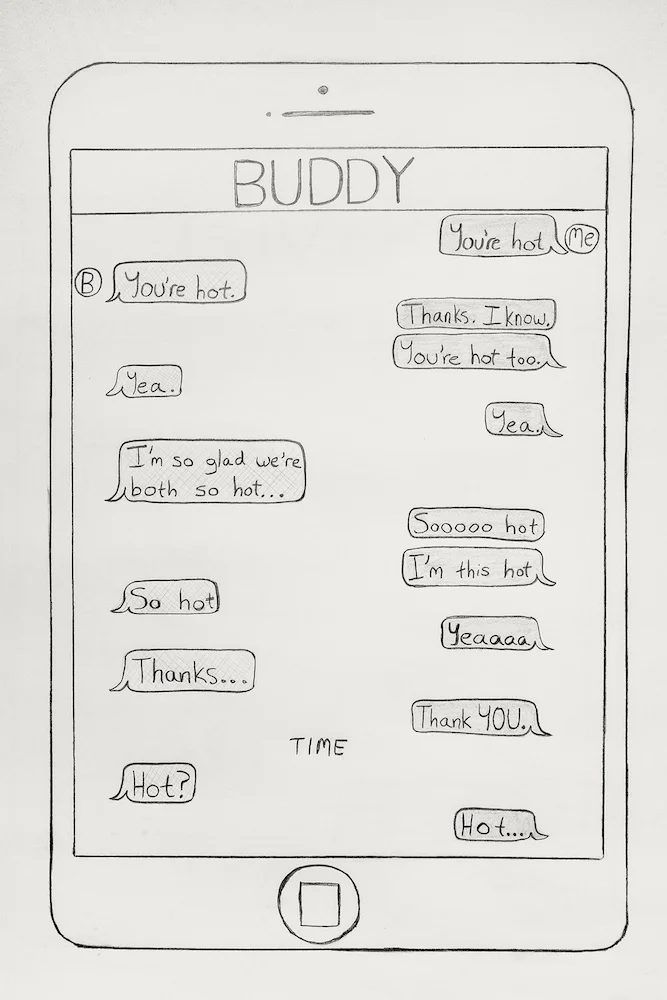 BUDDY
You're hot.
Me
B
You're hot.
Thanks. I know.
You're hot too.
Yea.
Yea.
I'm so glad we're
both so hot...
Sooooo hot
I'm this hot
So hot
Yeaaaa
Thanks...
Thank YOU.
TIME
Hot?
Hot...